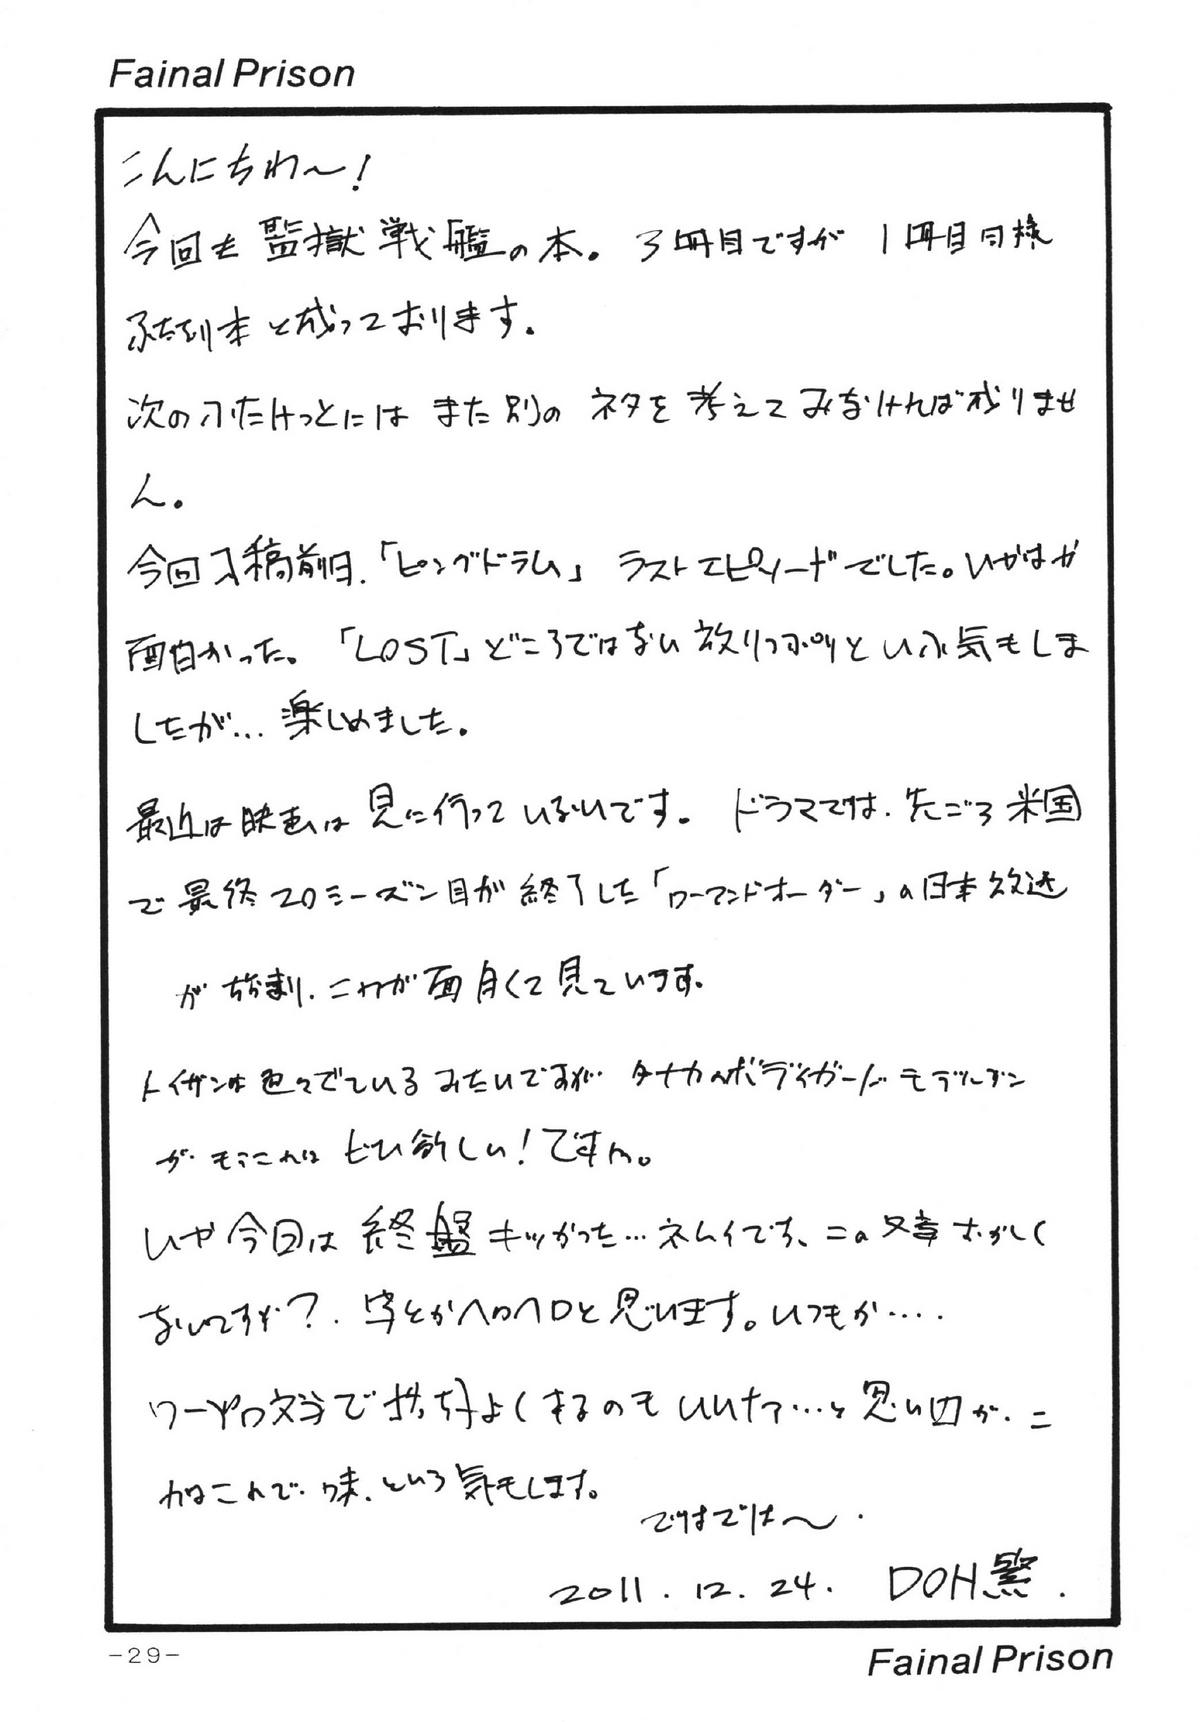 Fainal Prison
こんにちわ〜!
今回も監獄戦艦の本。3冊目ですが 1冊目同様
ふたなり本と成っております。
次のふたけっとにはまた別のネタを考えてみなければ成りませ
ん。
今回入稿前日、「ピングドラム」ラストエピソードでした。いやはや
面白かった。「LOST」どころではない放りっぷりという気もしま
したが…楽しめました。
最近は映画は見に行っていないです。ドラマでは、先ごろ米国
で最終20シーズン目が終了した「ローアンドオーダー」の日本放送
が始まり、これが面白くて見ています。
トイガンは色々でているみたいですが タナカのボディガードモデルガン
が、もうこれは ぜひ欲しい!ですね。
いや今回は終盤キツかった…ネムイです、この文章おかしく
ないですか?、字とかヘロヘロと思います。いつもか….
ワープロ文字で 持ちよくするのもいいなァ…と思いますが、こ
れはこれで、味、という気もします。
ではでは〜.
2011.12.24. DOH繁.
-29-
Fainal Prison